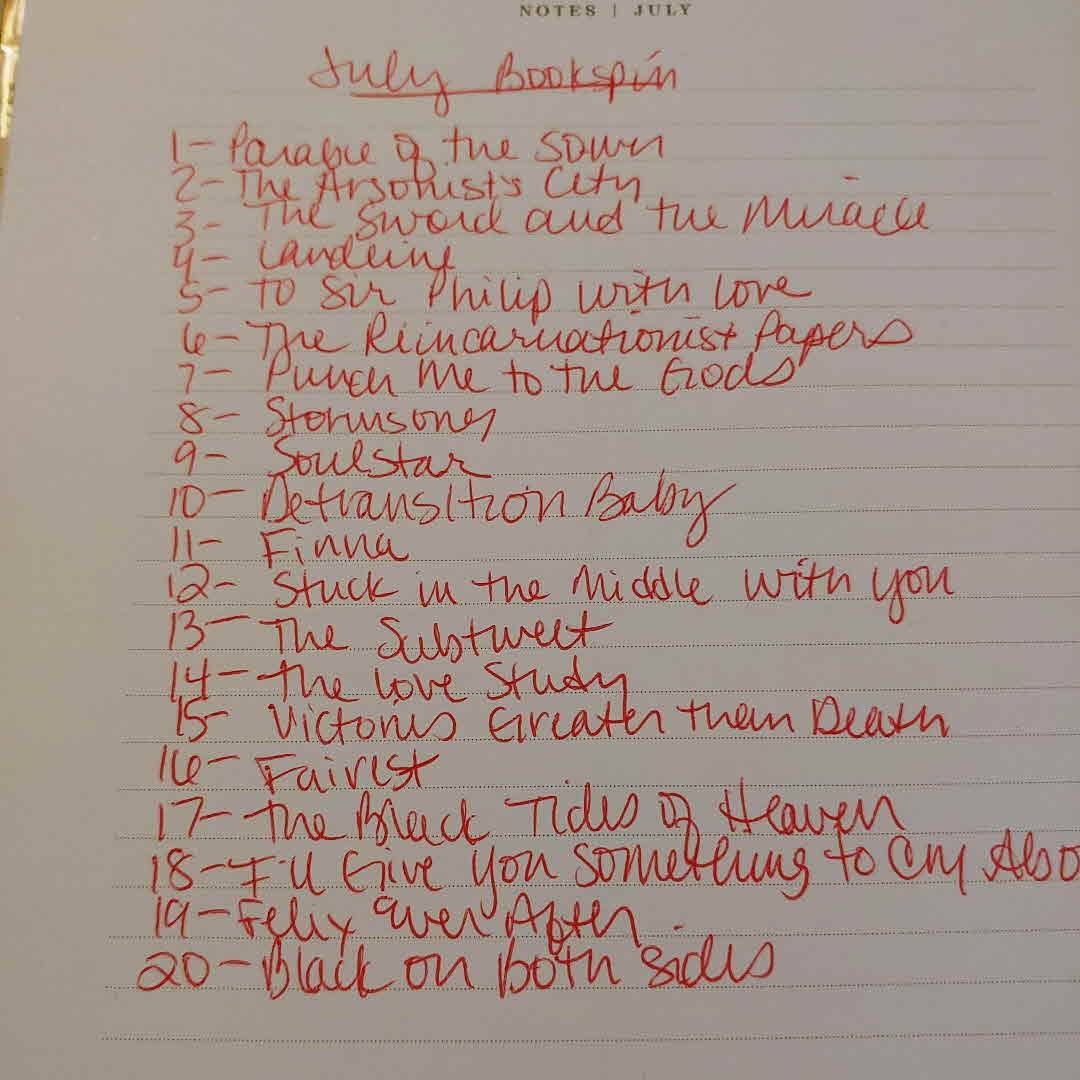 NOTES | JULY
July Bookspin
1- Parable of the Sower
2- The Arsonist's City
3- The Sword and the Miracle
4- Landline
5- To Sir Philip with love
6- The Reincarnationist Papers
7- Punch Me to the Gods
8- Stormsong
9- Soulstar
10- Detransition Baby
11- Finna
12- Stuck in the Middle with you
13- The Subtweet
14- The love Study
15- Victories Greater then Death
16- Fairest
17- The Black Tides of Heaven
18- I'll Give You Something to Cry Abo
19- Felix Ever After
20- Black on Both Sides